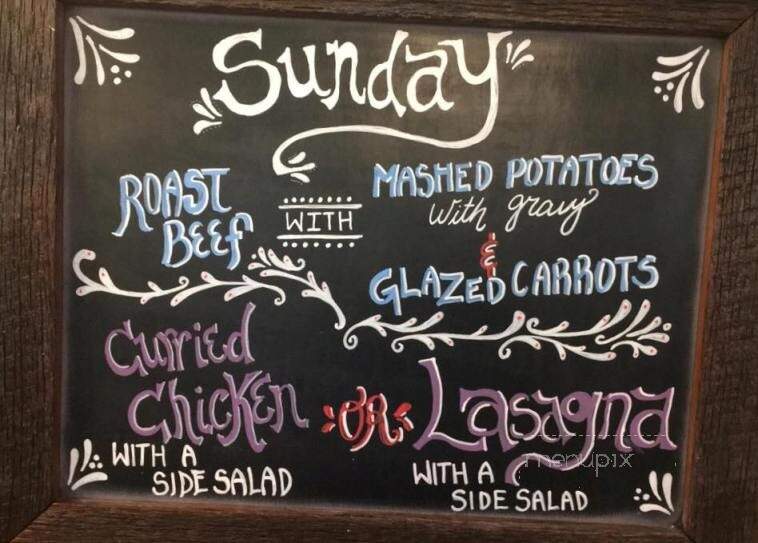 Sunday
ROAST BEEF WITH MASHED POTATOES
with gravy
&
GLAZED CARROTS
Curried
Chicken OR Lasagna
WITH A
SIDE SALAD
WITH A
SIDE SALAD
menupix